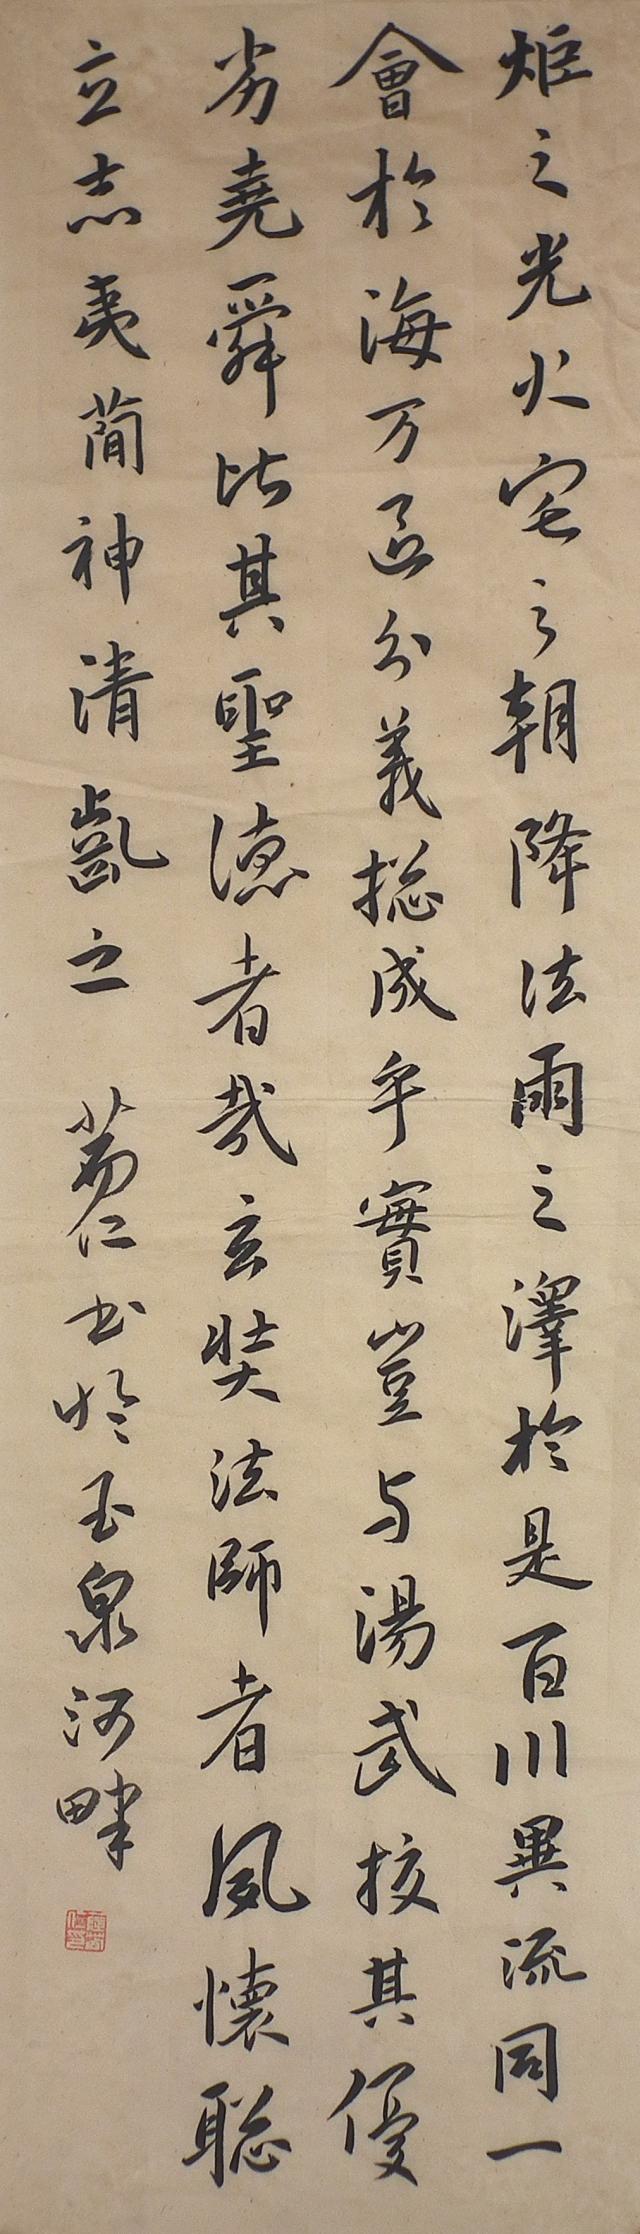 炬之光火宅之朝降法雨之澤於是百川異流同一
會於海万區分義揔成乎實豈与湯武挍其優
劣堯舜比其聖德者哉玄奘法師者夙懷聡
立志夷蕳神清齔之 仁书於玉泉河畔